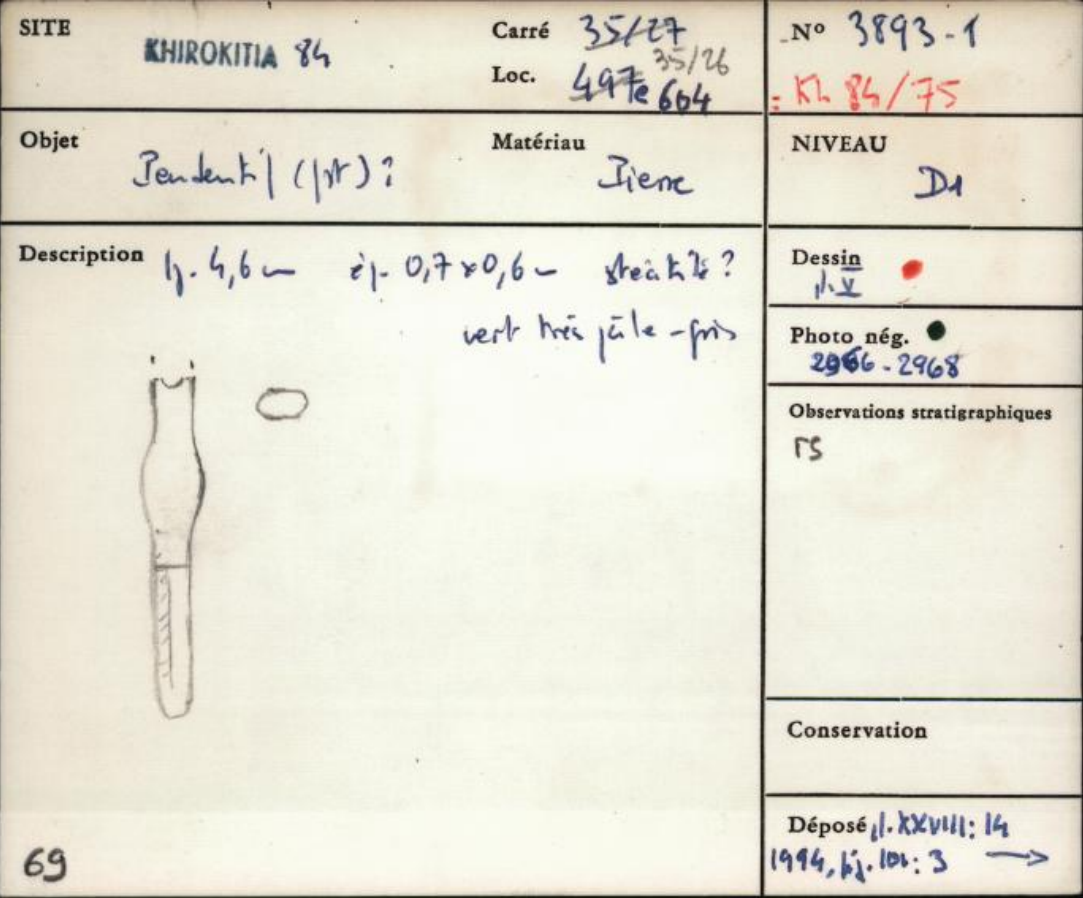 SITE
KHIROKITIA 84
Carré 35/27
35/26
Loc. 497e 604
N° 3893-1
= Kh 84/75
Objet
Pendentif (fgt) ?
Matériau
Pierre
NIVEAU
D1
Description lg. 4,6 cm ép. 0,7 x 0,6 stéatite ?
vert très pâle - gris
Dessin
pl. V
Photo nég.
2966 - 2968
Observations stratigraphiques
rs
Conservation
Déposé pl. XXVIII: 14
1994, fig. 101: 3 →
69